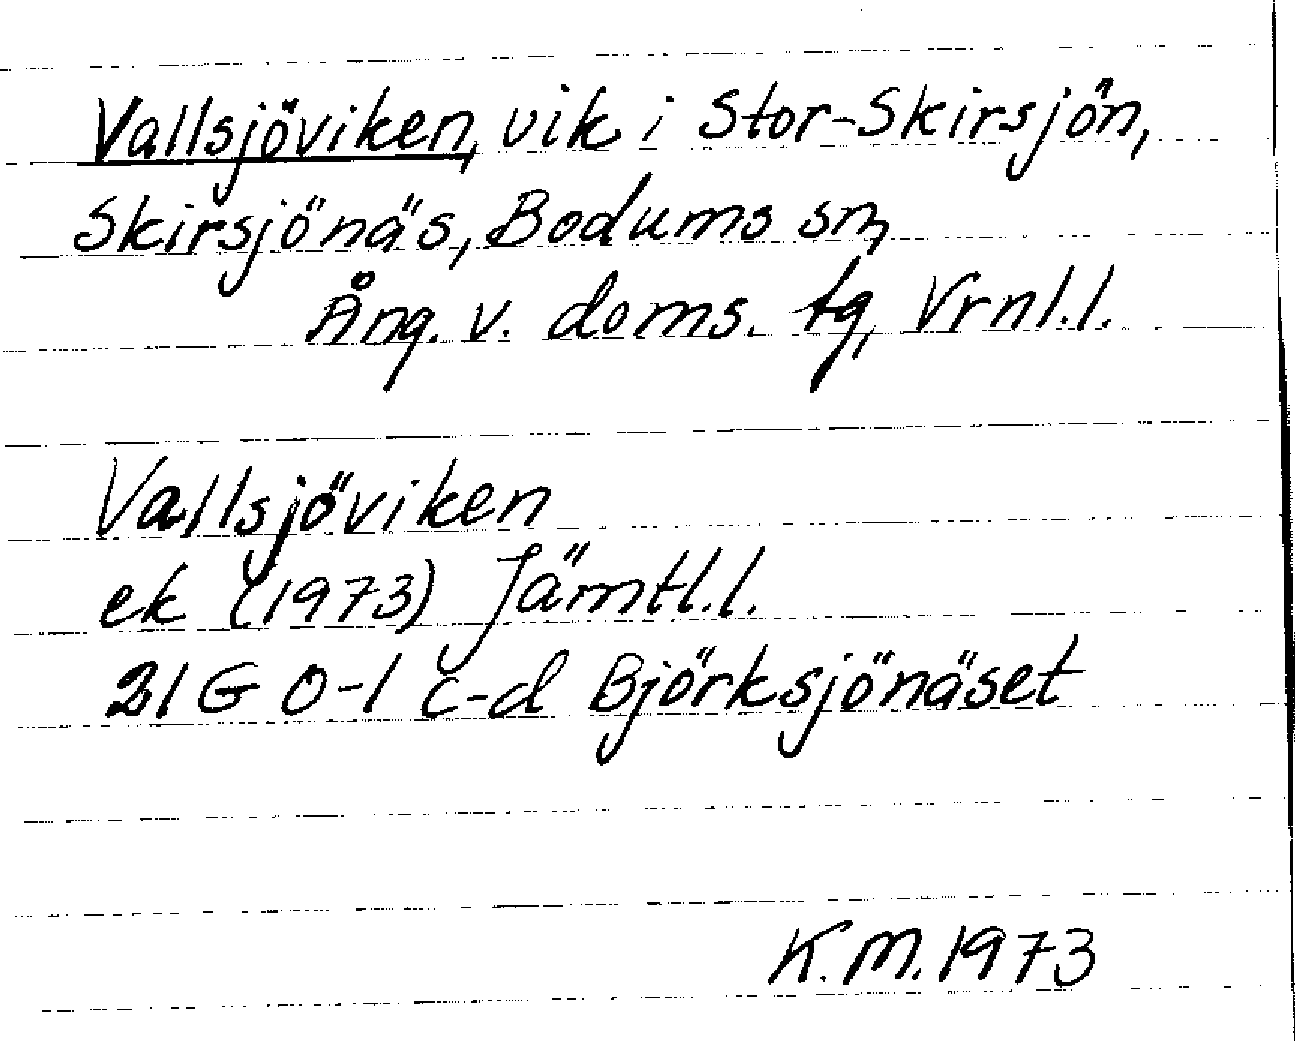 Vallsjöviken, vik i Stor-Skirsjön,
Skirsjönäs, Bodums sn,
Ång. v. doms. tg, Vrnl.l.
Vallsjöviken
ek (1973) Jämtl.l.
21G 0-1 c-d Björksjönäset
K.M. 1973